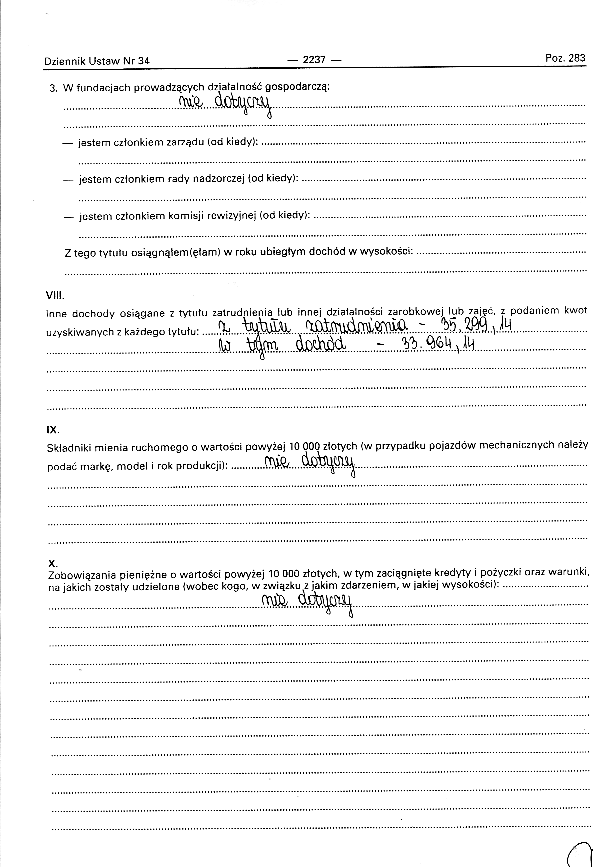 Dziennik Ustaw Nr 34 — 2237 — Poz. 283
3. W fundacjach prowadzących działalność gospodarczą:
nie dotyczy
— jestem członkiem zarządu (od kiedy):
— jestem członkiem rady nadzorczej (od kiedy):
— jestem członkiem komisji rewizyjnej (od kiedy):
Z tego tytułu osiągnąłem(ęłam) w roku ubiegłym dochód w wysokości:
VIII.
Inne dochody osiągane z tytułu zatrudnienia lub innej działalności zarobkowej lub zajęć, z podaniem kwot
uzyskiwanych z każdego tytułu: z tytułu zatrudnienia - 35.299,14
w tym dochód - 33.964,14
IX.
Składniki mienia ruchomego o wartości powyżej 10 000 złotych (w przypadku pojazdów mechanicznych należy
podać markę, model i rok produkcji): nie dotyczy
X.
Zobowiązania pieniężne o wartości powyżej 10 000 złotych, w tym zaciągnięte kredyty i pożyczki oraz warunki,
na jakich zostały udzielone (wobec kogo, w związku z jakim zdarzeniem, w jakiej wysokości):
nie dotyczy